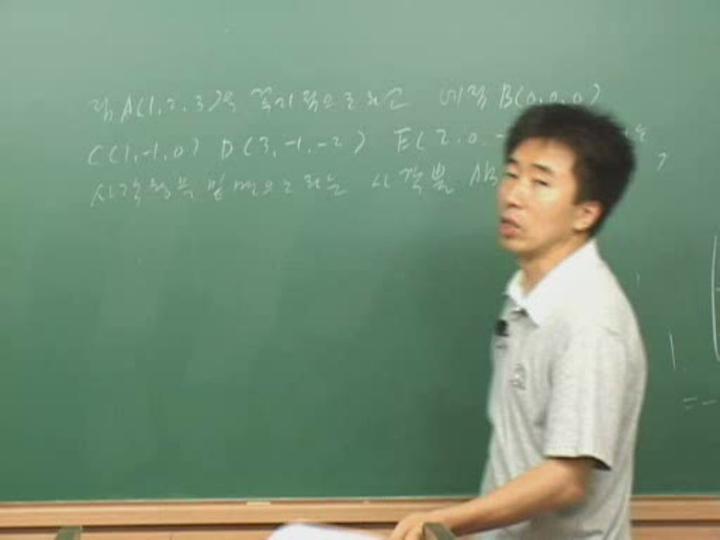 점 A(1, 2, 3)을 꼭지점으로 하고 네점 B(0, 0, 0)
C(1, -1, 0) D(3, -1, -2) E(2, 0, -
사각형을 밑면으로 하는 사각뿔 AB